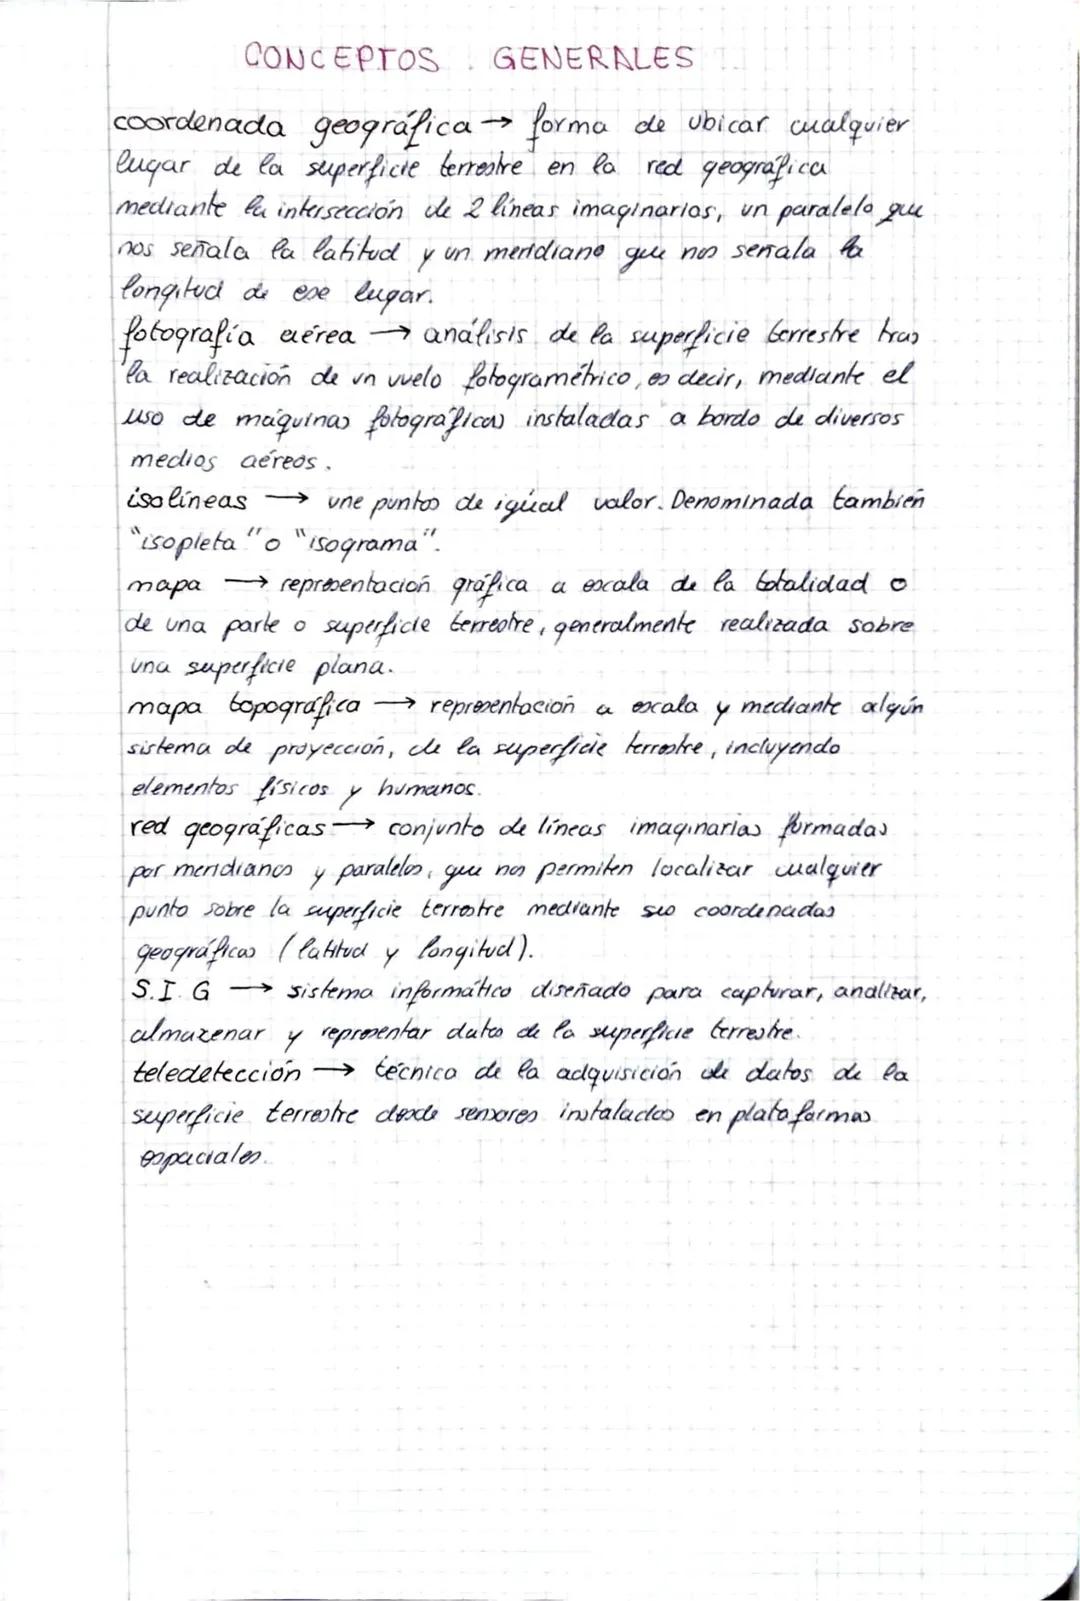 CONCEPTOS GENERALES
coordenada geográfica → forma de ubicar cualquier
lugar de la superficie terrestre en la red geográfica
mediante la intersección de 2 líneas imaginarias, un paralelo que
nos señala la latitud y un meridiano que nos señala la
longitud de ese lugar.
fotografía aérea → análisis de la superficie terrestre tras
la realización de un vuelo fotogramétrico, es decir, mediante el
uso de máquinas fotográficas instaladas a bordo de diversos
medios aéreos.
isolíneas → une puntos de igual valor. Denominada también
"isopleta" o "isograma".
mapa → representación gráfica a escala de la totalidad o
de una parte o superficie terrestre, generalmente realizada sobre
una superficie plana.
mapa topográfica → representación a escala y mediante algún
sistema de proyección, de la superficie terrestre, incluyendo
elementos físicos y humanos.
red geográficas → conjunto de líneas imaginarias formadas
por meridianos y paralelos, que nos permiten localizar cualquier
punto sobre la superficie terrestre mediante sus coordenadas
geográficas (latitud y longitud).
S.I.G → sistema informático diseñado para capturar, analizar,
almazenar y representar datos de la superficie terrestre.
teledetección → técnica de la adquisición de datos de la
superficie terrestre desde sensores instalados en plataformas
espaciales.